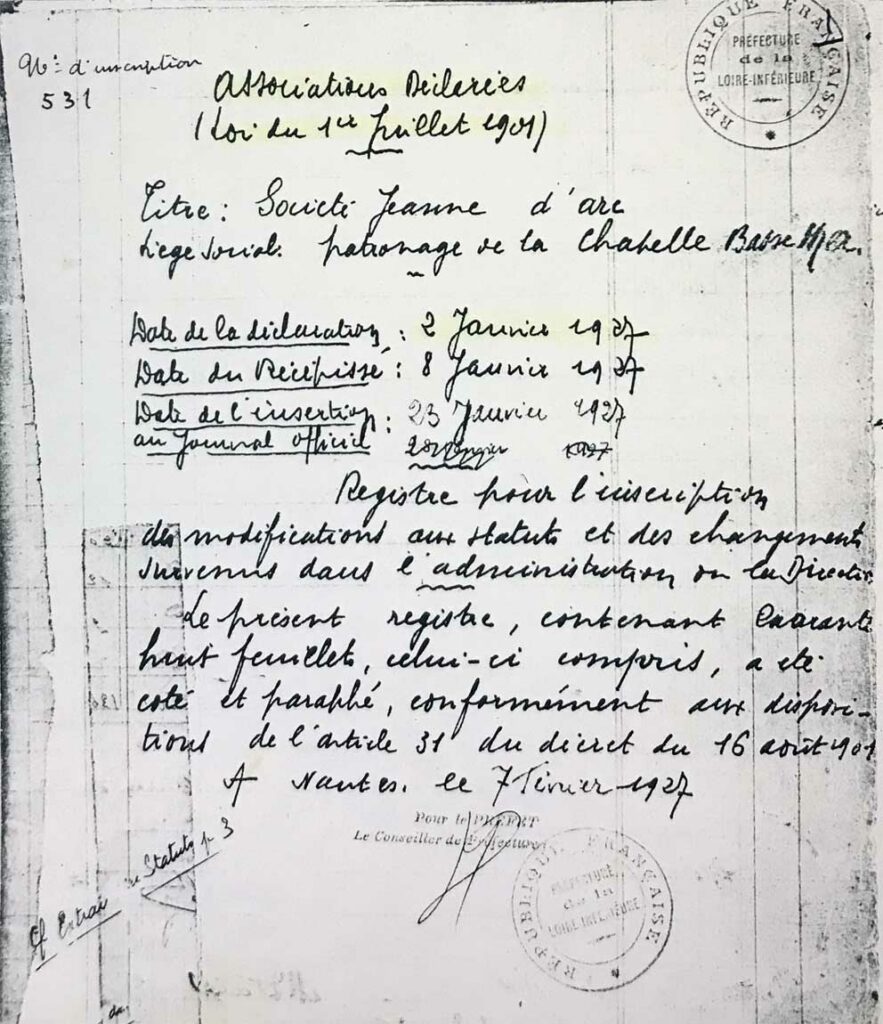 N° d'inscription
531
Associations Déclarées
(Loi du 1er Juillet 1901)
RÉPUBLIQUE FRANÇAISE
PRÉFECTURE
de la
LOIRE-INFÉRIEURE
Titre : Société Jeanne d'arc
Siège social : patronage de la Chapelle Basse Mer.
Date de la déclaration : 2 Janvier 1927
Date du Récépissé : 8 Janvier 1927
Date de l'insertion : 23 Janvier 1927
au Journal officiel 1927
Registre pour l'inscription
des modifications aux statuts et des changements
survenus dans l'administration ou la Directio
Le présent registre, contenant quarante
huit feuillets, celui-ci compris, a été
coté et paraphé, conformément aux disposi-
tions de l'article 31 du décret du 16 août 1901
A Nantes. le 7 février 1927
Pour le PRÉFET
Le Conseiller de Préfecture
RÉPUBLIQUE FRANÇAISE
PRÉFECTURE
de la
LOIRE-INFÉRIEURE
cf Extrait Statuts p 3